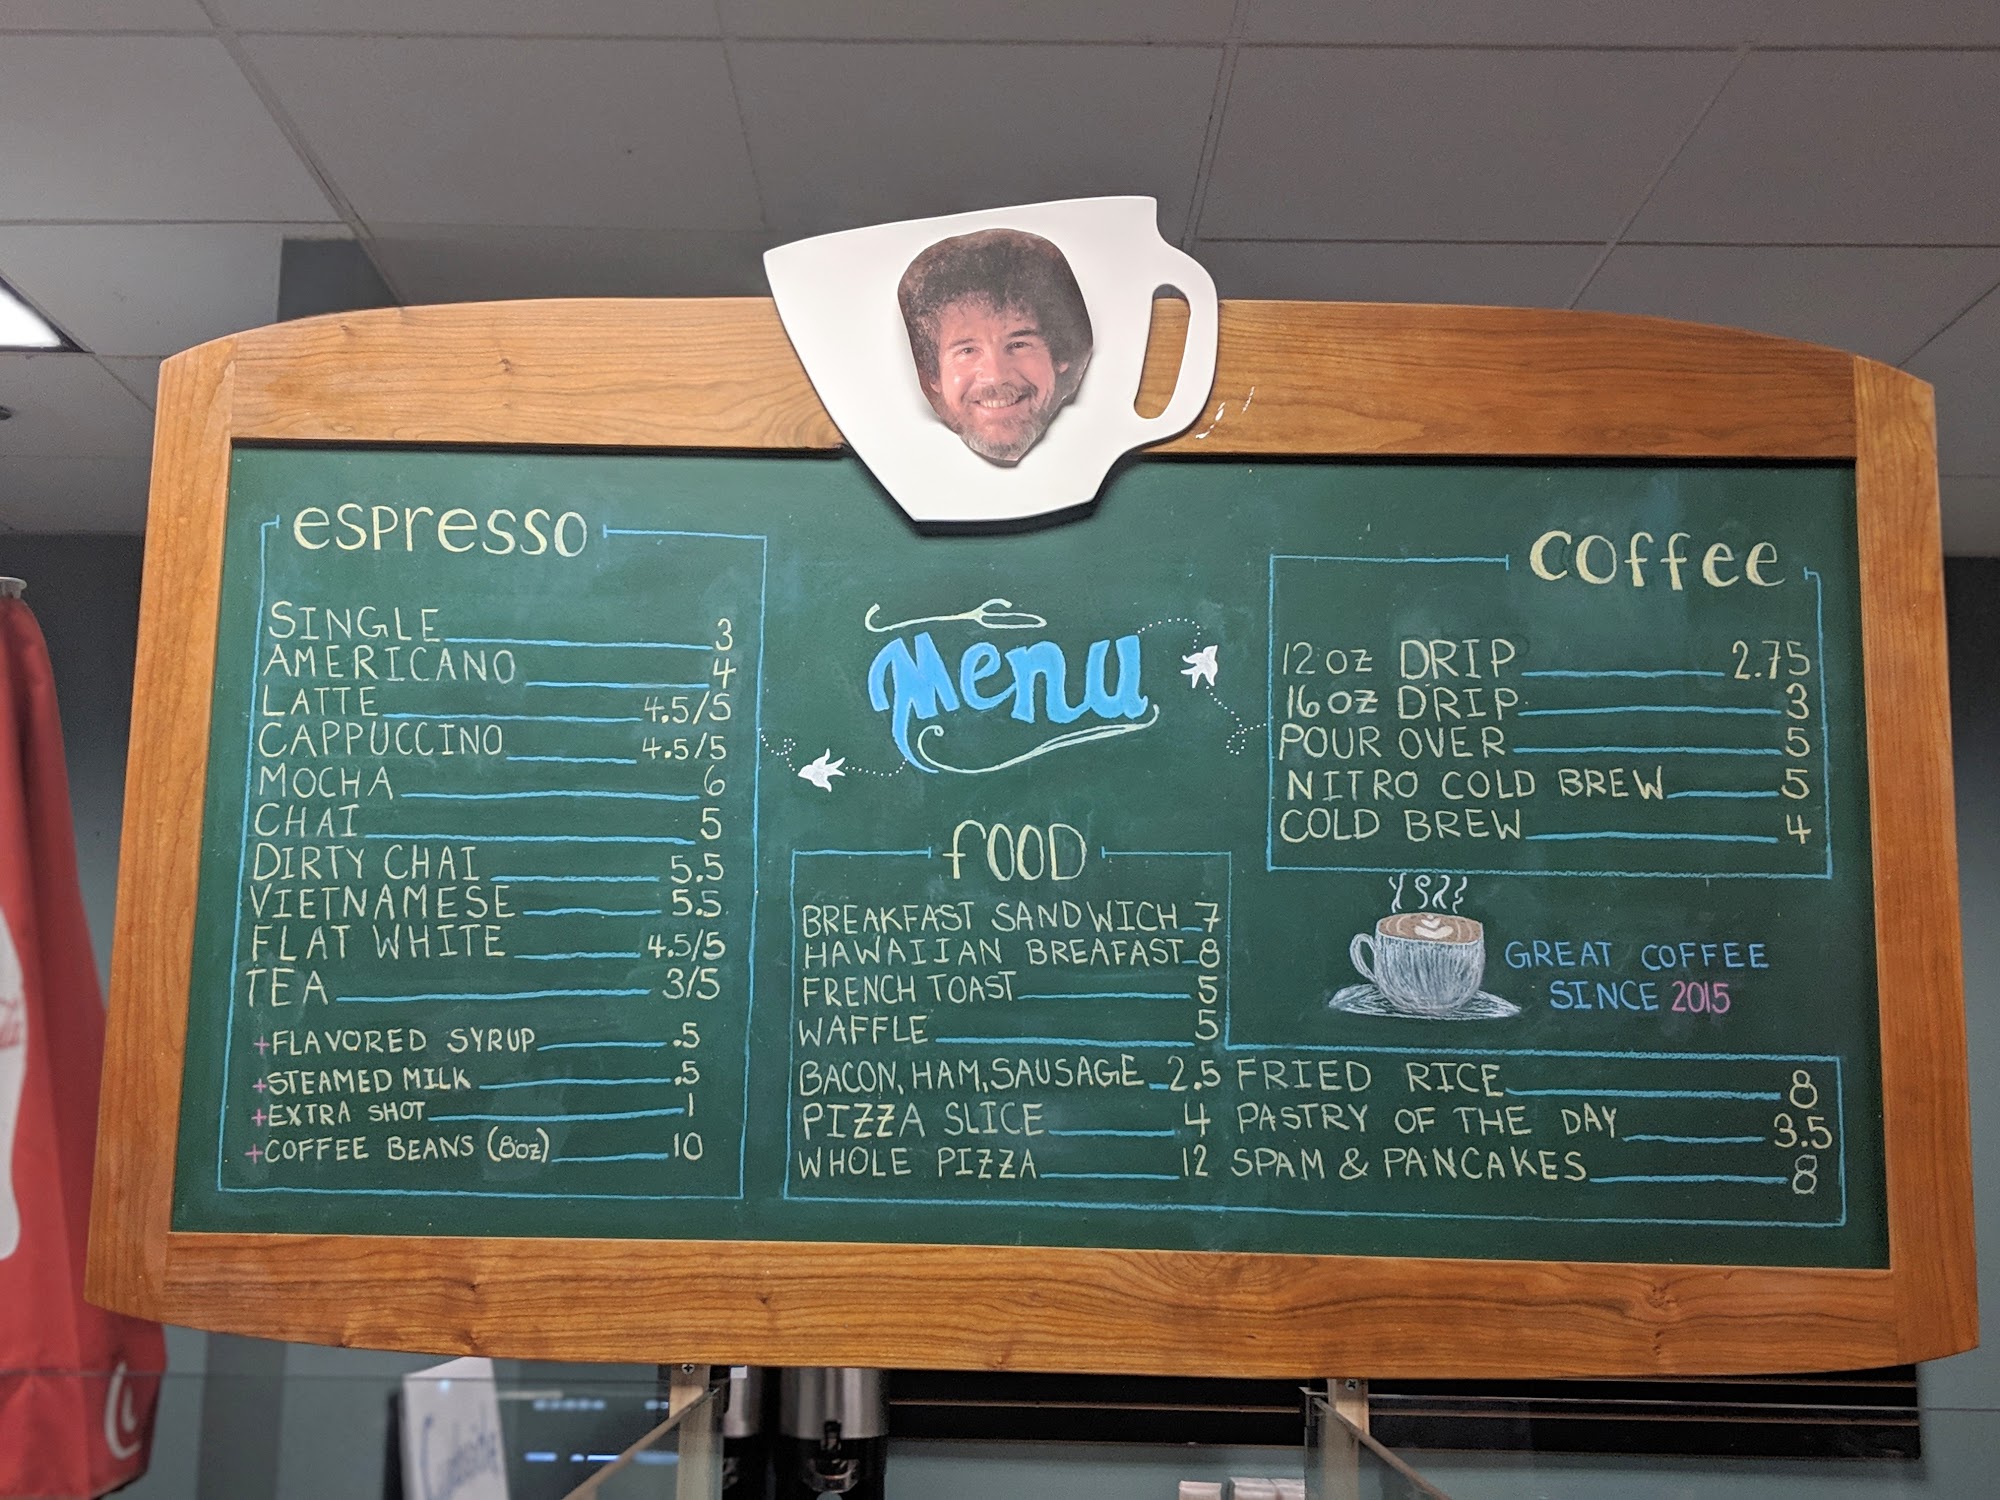 espresso
SINGLE 3
AMERICANO 4
LATTE 4.5/5
CAPPUCCINO 4.5/5
MOCHA 6
CHAI 5
DIRTY CHAI 5.5
VIETNAMESE 5.5
FLAT WHITE 4.5/5
TEA 3/5
+FLAVORED SYRUP .5
+STEAMED MILK .5
+EXTRA SHOT 1
+COFFEE BEANS (8oz) 10
Menu
fOOD
BREAKFAST SANDWICH 7
HAWAIIAN BREAFAST 8
FRENCH TOAST 5
WAFFLE 5
BACON, HAM, SAUSAGE 2.5
PIZZA SLICE 4
WHOLE PIZZA 12
FRIED RICE 8
PASTRY OF THE DAY 3.5
SPAM & PANCAKES 8
coffee
12 oz DRIP 2.75
16 oz DRIP 3
POUR OVER 5
NITRO COLD BREW 5
COLD BREW 4
GREAT COFFEE
SINCE 2015